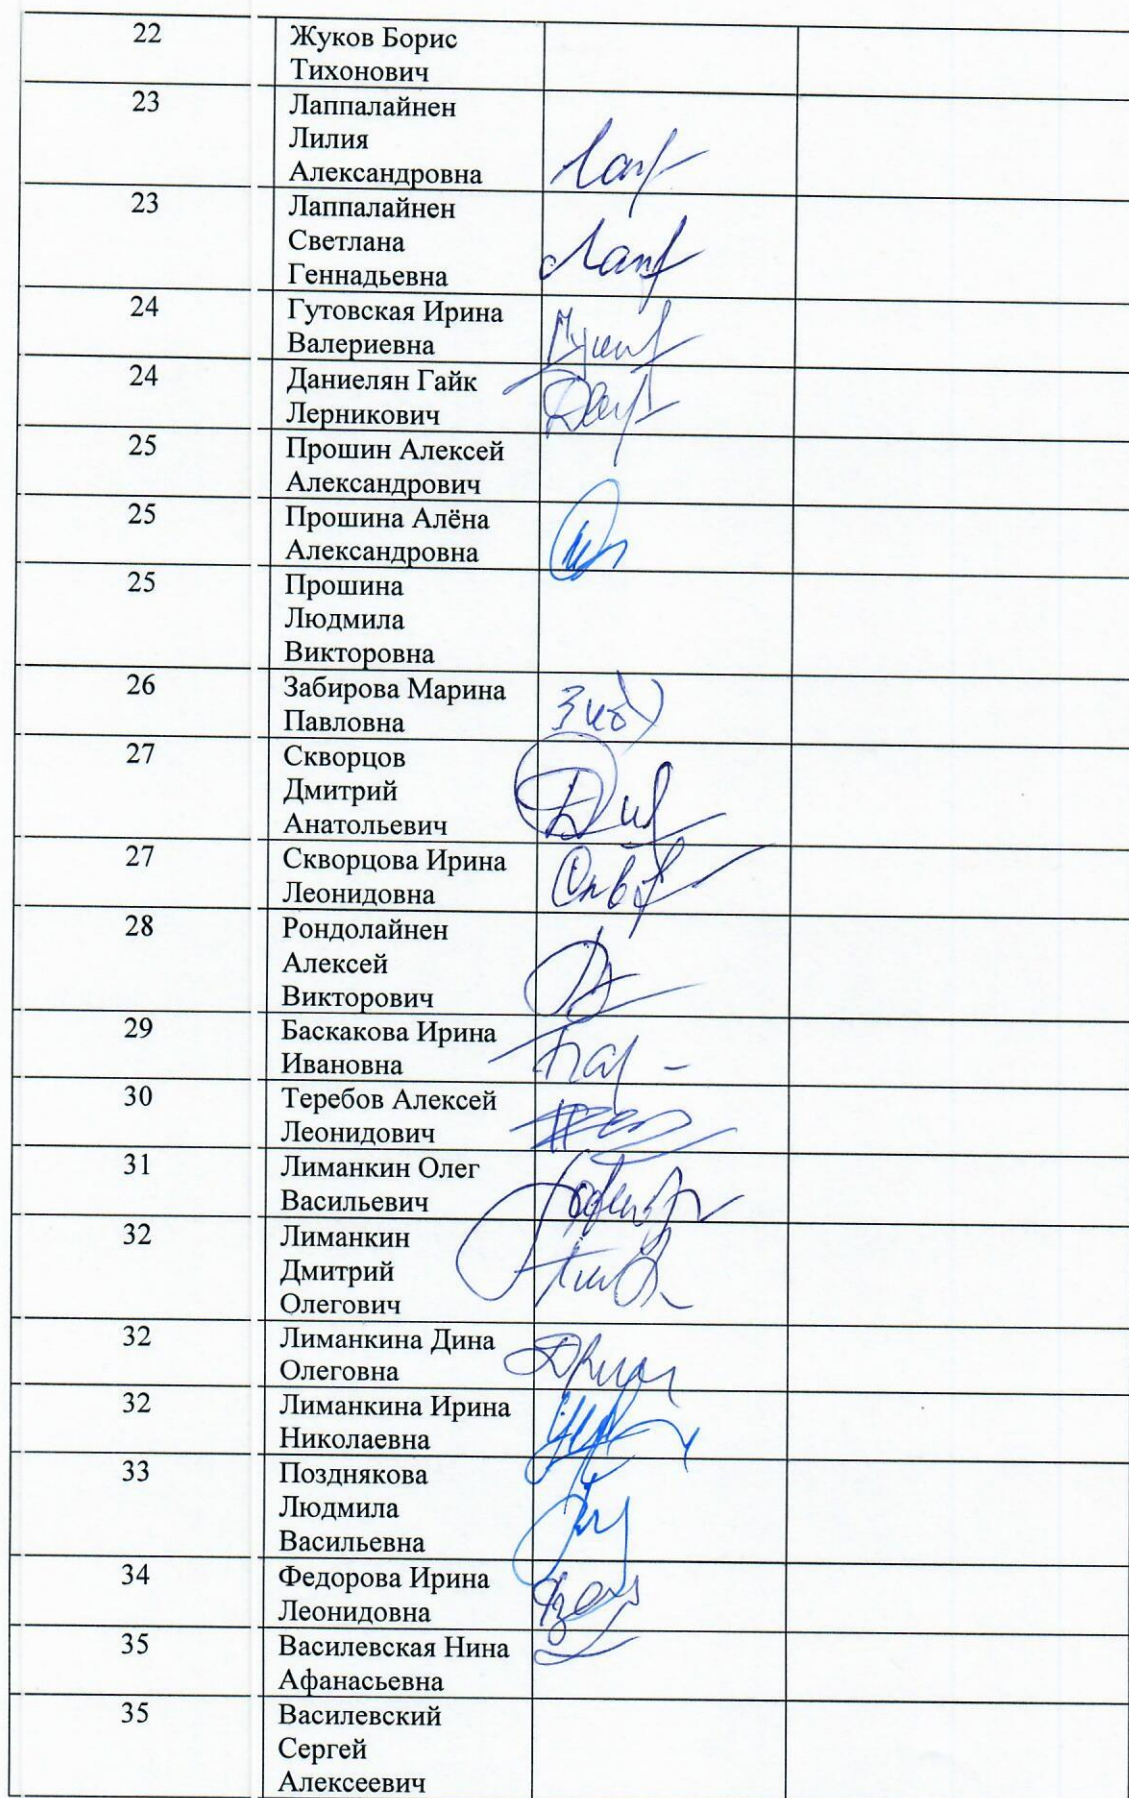 22 Жуков Борис
Тихонович
23 Лаппалайнен
Лилия
Александровна
23 Лаппалайнен
Светлана
Геннадьевна
24 Гутовская Ирина
Валериевна
24 Даниелян Гайк
Лерникович
25 Прошин Алексей
Александрович
25 Прошина Алёна
Александровна
25 Прошина
Людмила
Викторовна
26 Забирова Марина
Павловна
27 Скворцов
Дмитрий
Анатольевич
27 Скворцова Ирина
Леонидовна
28 Рондолайнен
Алексей
Викторович
29 Баскакова Ирина
Ивановна
30 Теребов Алексей
Леонидович
31 Лиманкин Олег
Васильевич
32 Лиманкин
Дмитрий
Олегович
32 Лиманкина Дина
Олеговна
32 Лиманкина Ирина
Николаевна
33 Позднякова
Людмила
Васильевна
34 Федорова Ирина
Леонидовна
35 Василевская Нина
Афанасьевна
35 Василевский
Сергей
Алексеевич